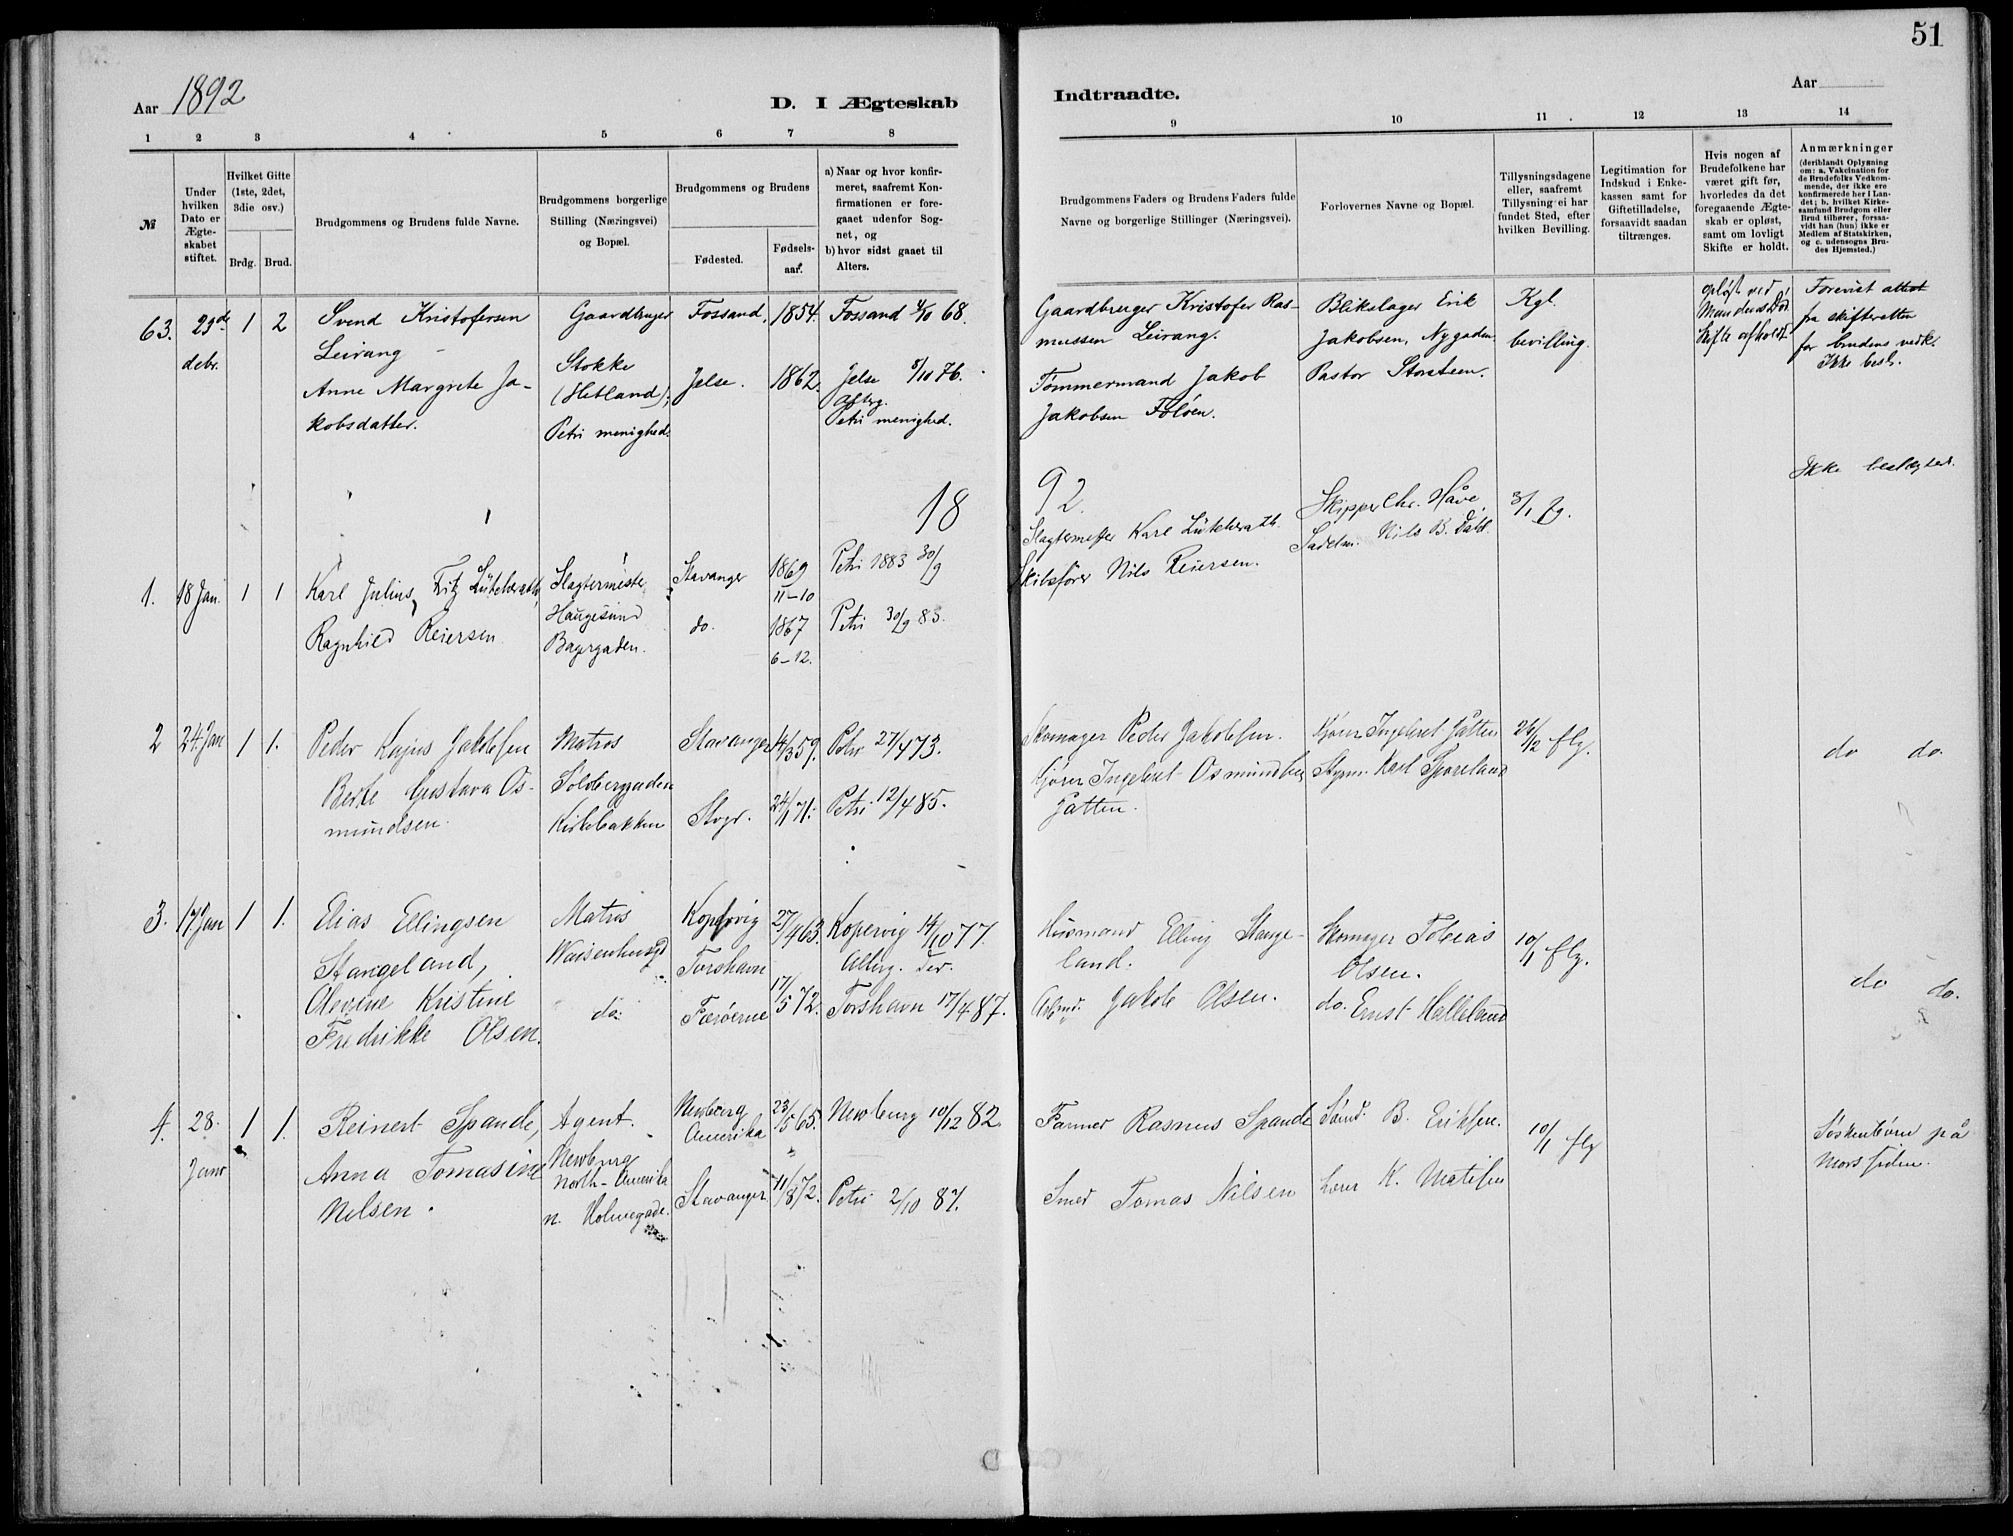 51
Aar 1892
D. I Ægteskab
Indtraadte.
Aar
1 2 3 4 5 6 7 8
9 10 11 12 13 14
№
Under
hvilken
Dato er
Ægte-
skabet
stiftet.
Hvilket Gifte
(1ste, 2det,
3die osv.)
Brdg. Brud.
Brudgommens og Brudens fulde Navne.
Brudgommens borgerlige
Stilling (Næringsvei)
og Bopæl.
Brudgommens og Brudens
Fødested.
Fødsels-
aar.
a) Naar og hvor konfir-
meret, saafremt Kon-
firmationen er fore-
gaaet udenfor Sog-
net, og
b) hvor sidst gaaet til
Alters.
Brudgommens Faders og Brudens Faders fulde
Navne og borgerlige Stillinger (Næringsvei).
Forlovernes Navne og Bopæl.
Tillysningsdagene
eller, saafremt
Tillysning ei har
fundet Sted, efter
hvilken Bevilling.
Legitimation for
Indskud i Enke-
kassen samt for
Giftetilladelse,
forsaavidt saadan
tiltrænges.
Hvis nogen af
Brudefolkene har
været gift før,
hvorledes da det
foregaaende Ægte-
skab er opløst,
samt om lovligt
Skifte er holdt.
Anmærkninger
(deriblandt Oplysning
om: a. Vakcination for
de Brudefolks Vedkom-
mende, der ikke ere
konfirmerede her i Lan-
det; b. hvilket Kirke-
samfund Brudgom eller
Brud tilhører, forsaa-
vidt han (hun) ikke er
Medlem af Statskirken,
og c. udensogns Bru-
des Hjemsted.)
63. 29de
debr.
1 2
Svend Kristofersen
Leirang
Anne Margrete Ja-
kobsdatter.
Gaardbruger
Stokke
(Hetland);
Petri menighed.
Fossand,
Jelse.
1854.
1862.
Fossand 4/10 68.
Jelse 8/10 76.
Petri menighed.
Gaardbruger Kristofer Ras-
mussen Leirang.
Tømmermand Jakob
Jakobsen Foløen.
Blikslager Erik
Jakobsen, Nygaden.
Pastor Storsteen.
Kgl.
bevilling.
opløst ved
Mandens Død.
Skifte afholdt.
Forevist attest
fra skifteretten
for brudens vedk.
Ikke besl.
1892.
1. 18 Jan. 1 1
Karl Julius Fritz Lütcherath,
Ragnhild Reiersen
Slagtermester
Haugesund
Bagergaden.
Stavanger
do.
1869
11-10
1867
6-12.
Petri 1883 30/9
Petri 30/9 83.
Slagtermester Karl Lütcherath.
Skibsfører Nils Reiersen.
Skipper Chr. Håve,
Sadelm. Nils B. Dahl.
3/1 flg.
Ikke beslægtet.
2 24. Jan 1 1.
Peder Kajus Jakobsen
Berte Gustava Os-
mundsen.
Matros
Solberggaden
Kirkebakken
Stavanger
Stvgr.
14/3 59.
24/1 71.
Petri 27/4 73.
Petri 12/4 85.
Skomager Peder Jakobsen.
Kjører Ingebret Osmundsen
Jåtten.
Kjører Ingebret Jåtten
Styrm. Karl
26/12 flg.
do do.
3. 17 Jan 1 1.
Elias Ellingsen
Stangeland,
Olevine Kristine
Fredrikke Olsen.
Matros
Waisenhusgd
do.
Kopervig
Torshavn
Færøerne
27/4 63.
17/5 72.
Kopervig 14/10 77.
Torshavn 17/4 87.
Husmand Elling Stange-
land.
Arbmd. Jakob Olsen.
Skomager Tobias
Olsen.
do. Ernst Halleland
10/1 flg.
do do.
4. 28.
Janr
1 1.
Reinert Spande,
Anna Tomasine
Nilsen.
Agent.
Newburg
North-Amerika
n. Holmegade.
Newburg
Amerika
Stavanger
23/5 65.
11/8 72.
Newburg 10/12 82.
Petri 2/10 87.
Farmer Rasmus Spande
Smed Tomas Nilsen
Smed B. Eriksen.
Lærer K. Matisen
10/1 flg
Søskenbørn på
Mors siden.